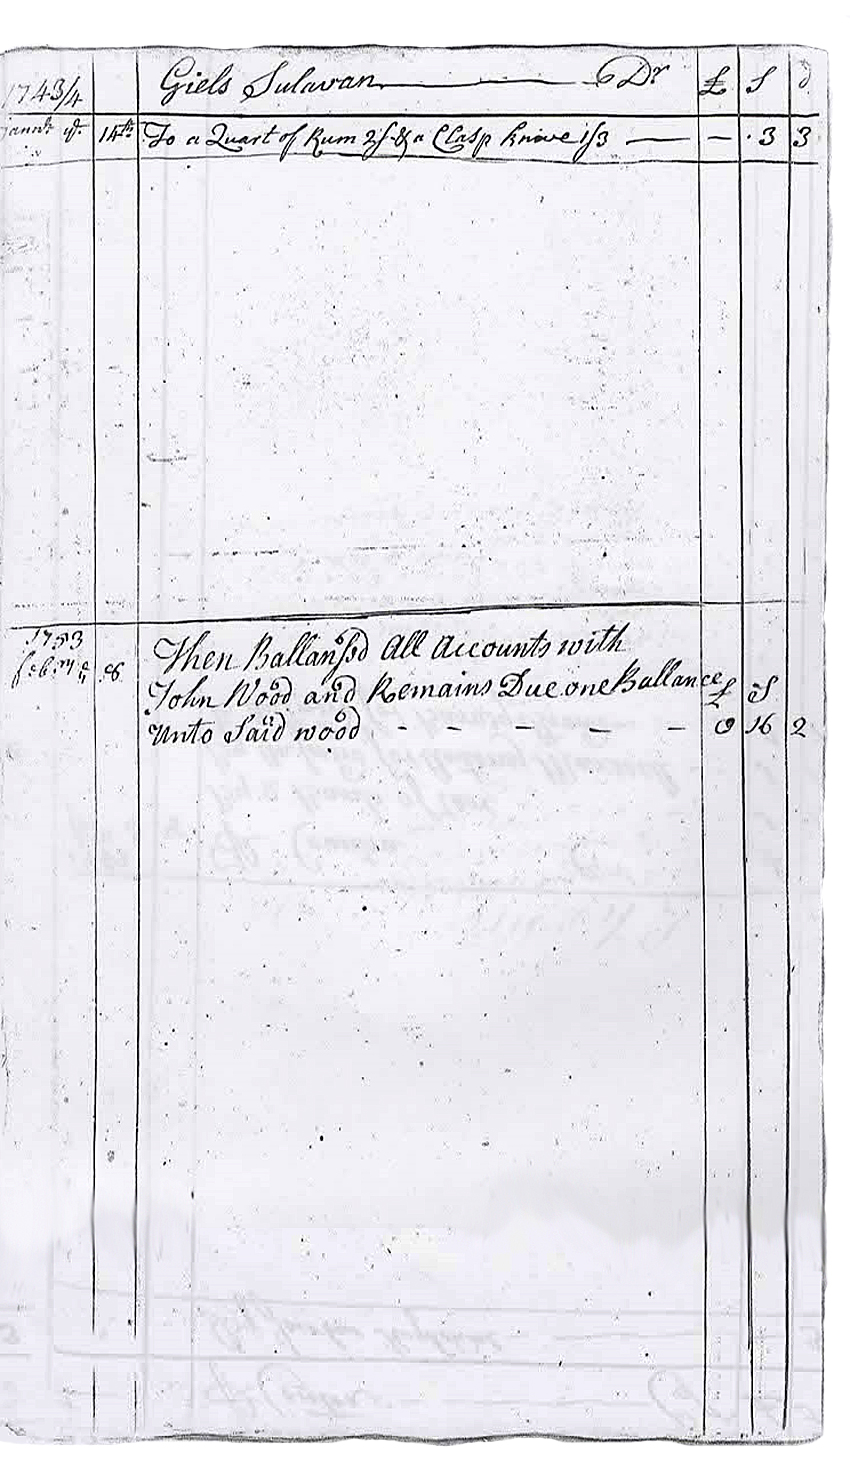 1743/4 Giels Sulavan Dr £ S d
14th To a Quart of Rum 2/ & a Clasp knive 1/3 - 3 3
1753 Then Ballansd All Accounts with
John Wood and Remains Due one Ballance £ S
Unto Said wood - - - - - 0 16 2